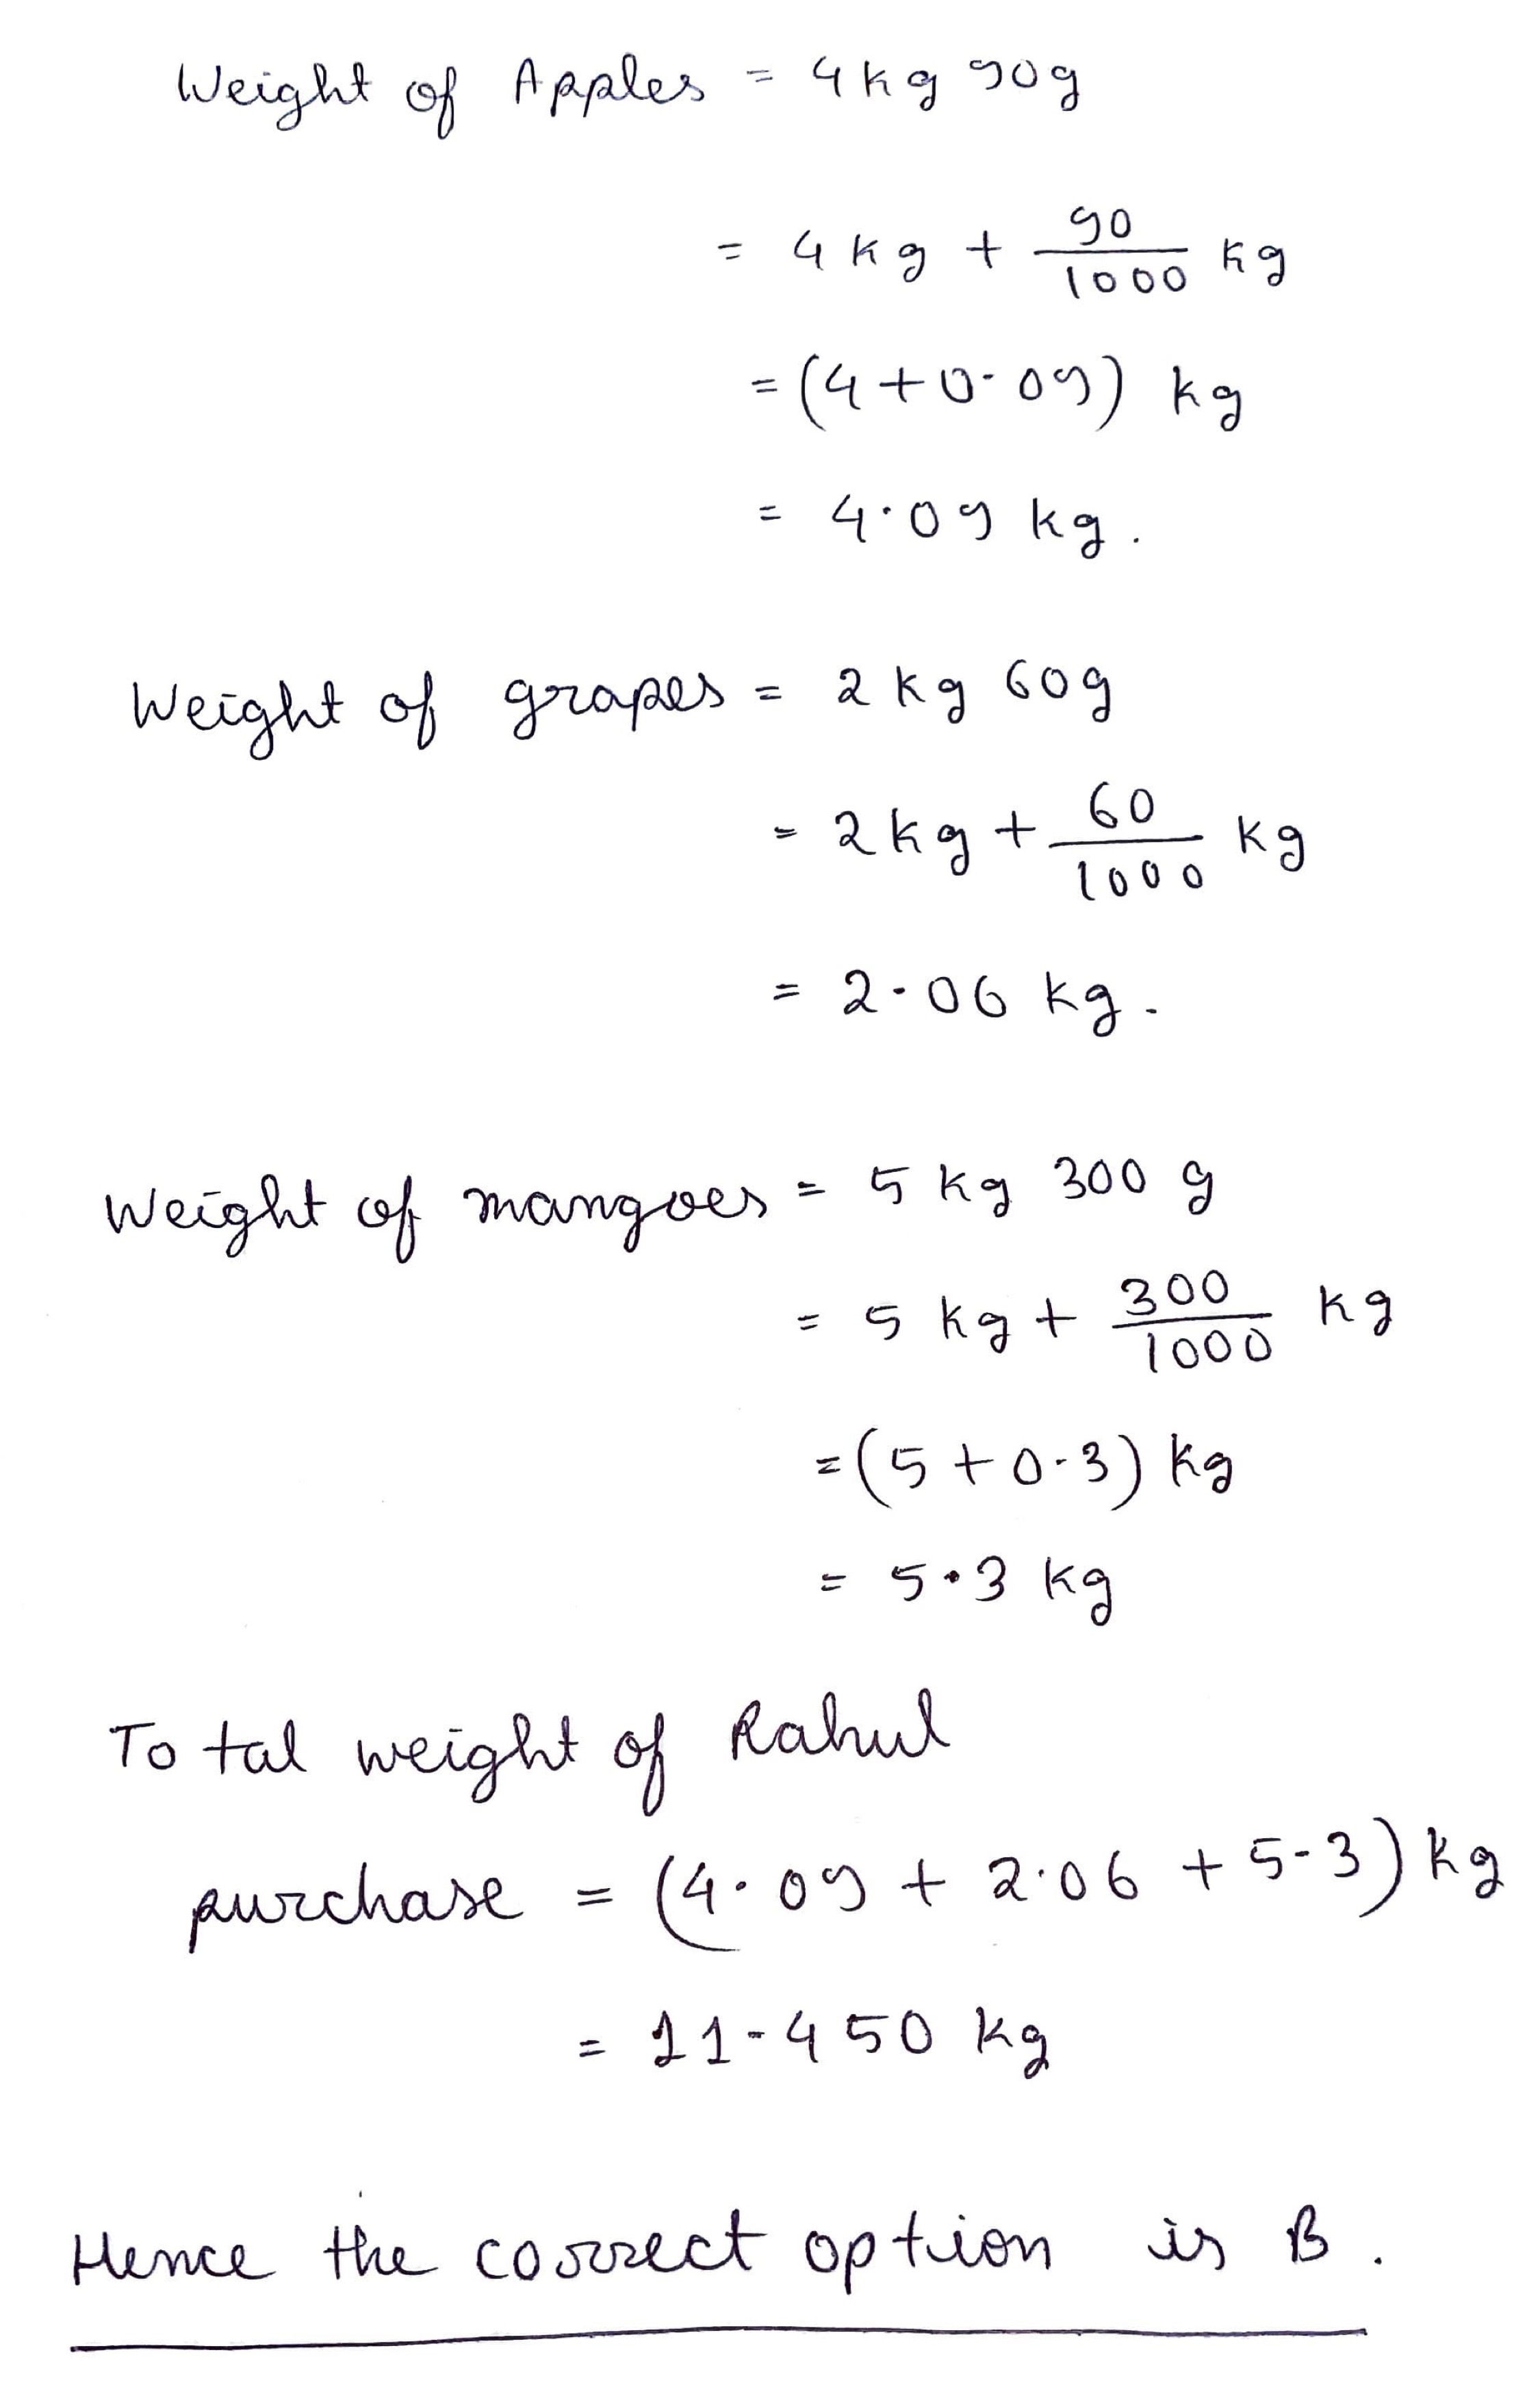 Weight of Apples = 4 kg 90g
= 4 kg + 90/1000 kg
= (4 + 0.09) kg
= 4.09 kg.
Weight of grapes = 2 kg 60g
= 2 kg + 60/1000 kg
= 2.06 kg.
Weight of mangoes = 5 kg 300 g
= 5 kg + 300/1000 kg
= (5 + 0.3) kg
= 5.3 kg
Total weight of Rahul
purchase = (4.09 + 2.06 + 5.3) kg
= 11.450 kg
Hence the correct option is B.